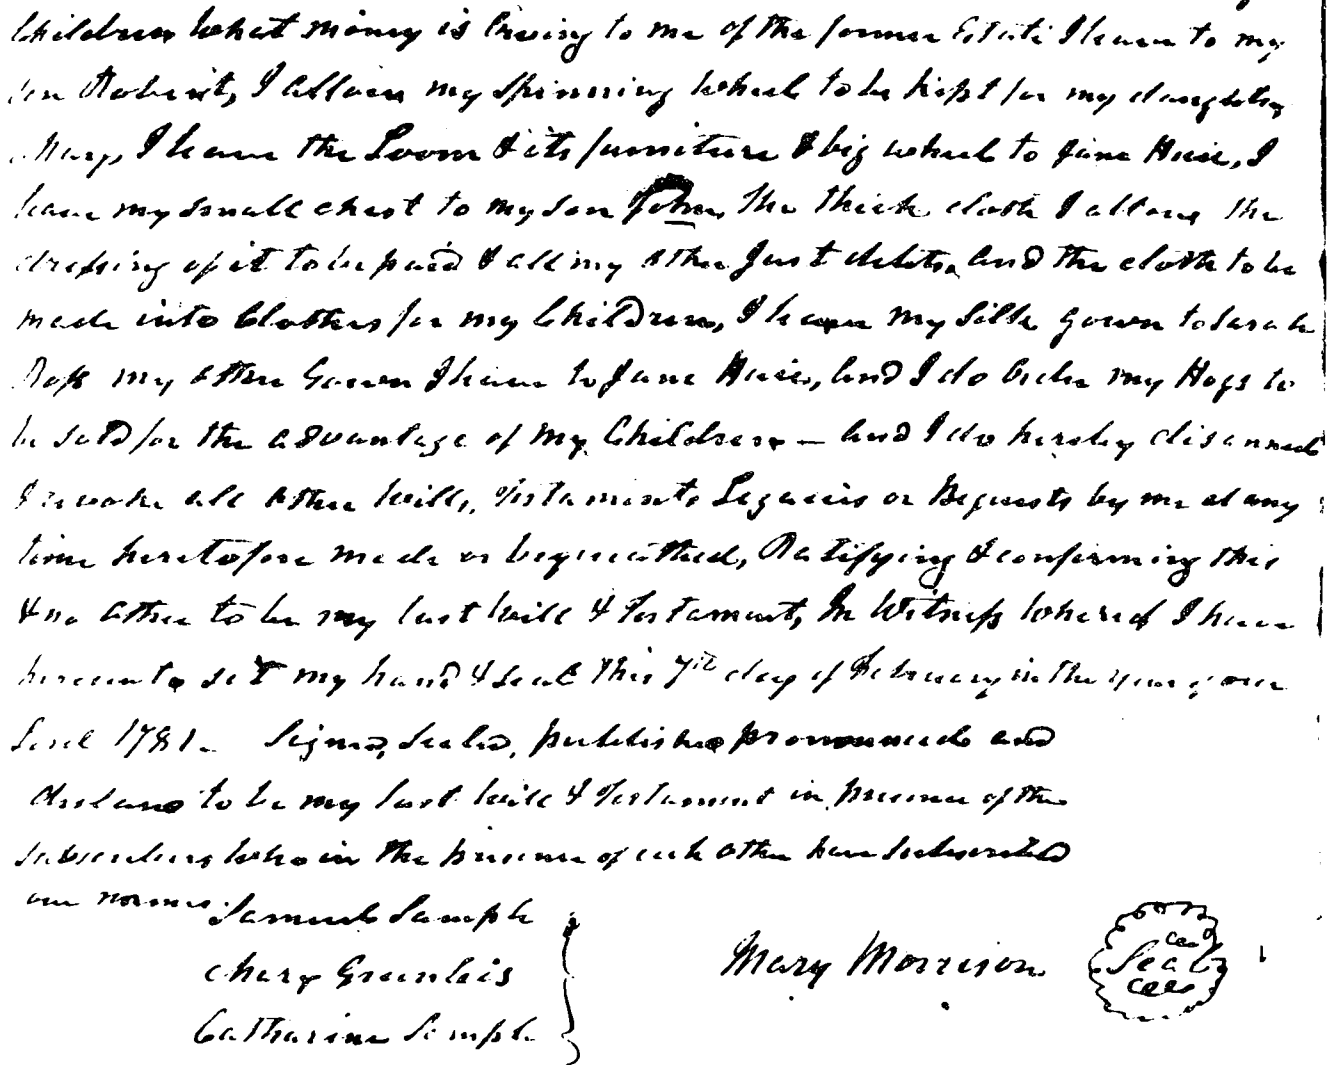 Children what money is Owing to me of the former Estate I leave to my
son Robert, I allow my Spinning wheel to be kept for my daughter
Mary, I leave the Loom & its furniture & big wheel to Jane Huie, I
leave my small chest to my Son John, the thick cloth I allow the
dressing of it to be paid & all my other Just debts, and the cloth to be
made into Clothes for my Children, I leave my Silk gown to Sarah
Ross my other Gown I leave to Jane Huie, and I do order my Hogs to
be sold for the advantage of my Children — and I do hereby disannul
& revoke all other Wills, Testaments Legacies or Bequests by me at any
time heretofore made or bequeathed, Ratifying & confirming this
& no other to be my last Will & Testament, In Witness whereof I have
hereunto set my hand & Seal this 7th day of February in the year of our
Lord 1781. Signed, Sealed, published pronounced and
declared to be my last Will & Testament in presence of the
subscribers who in the presence of each other have subscribed
our names.
Samuel Sample
Mary Greenleis
Catharine Sample
Mary Morrison
Seal